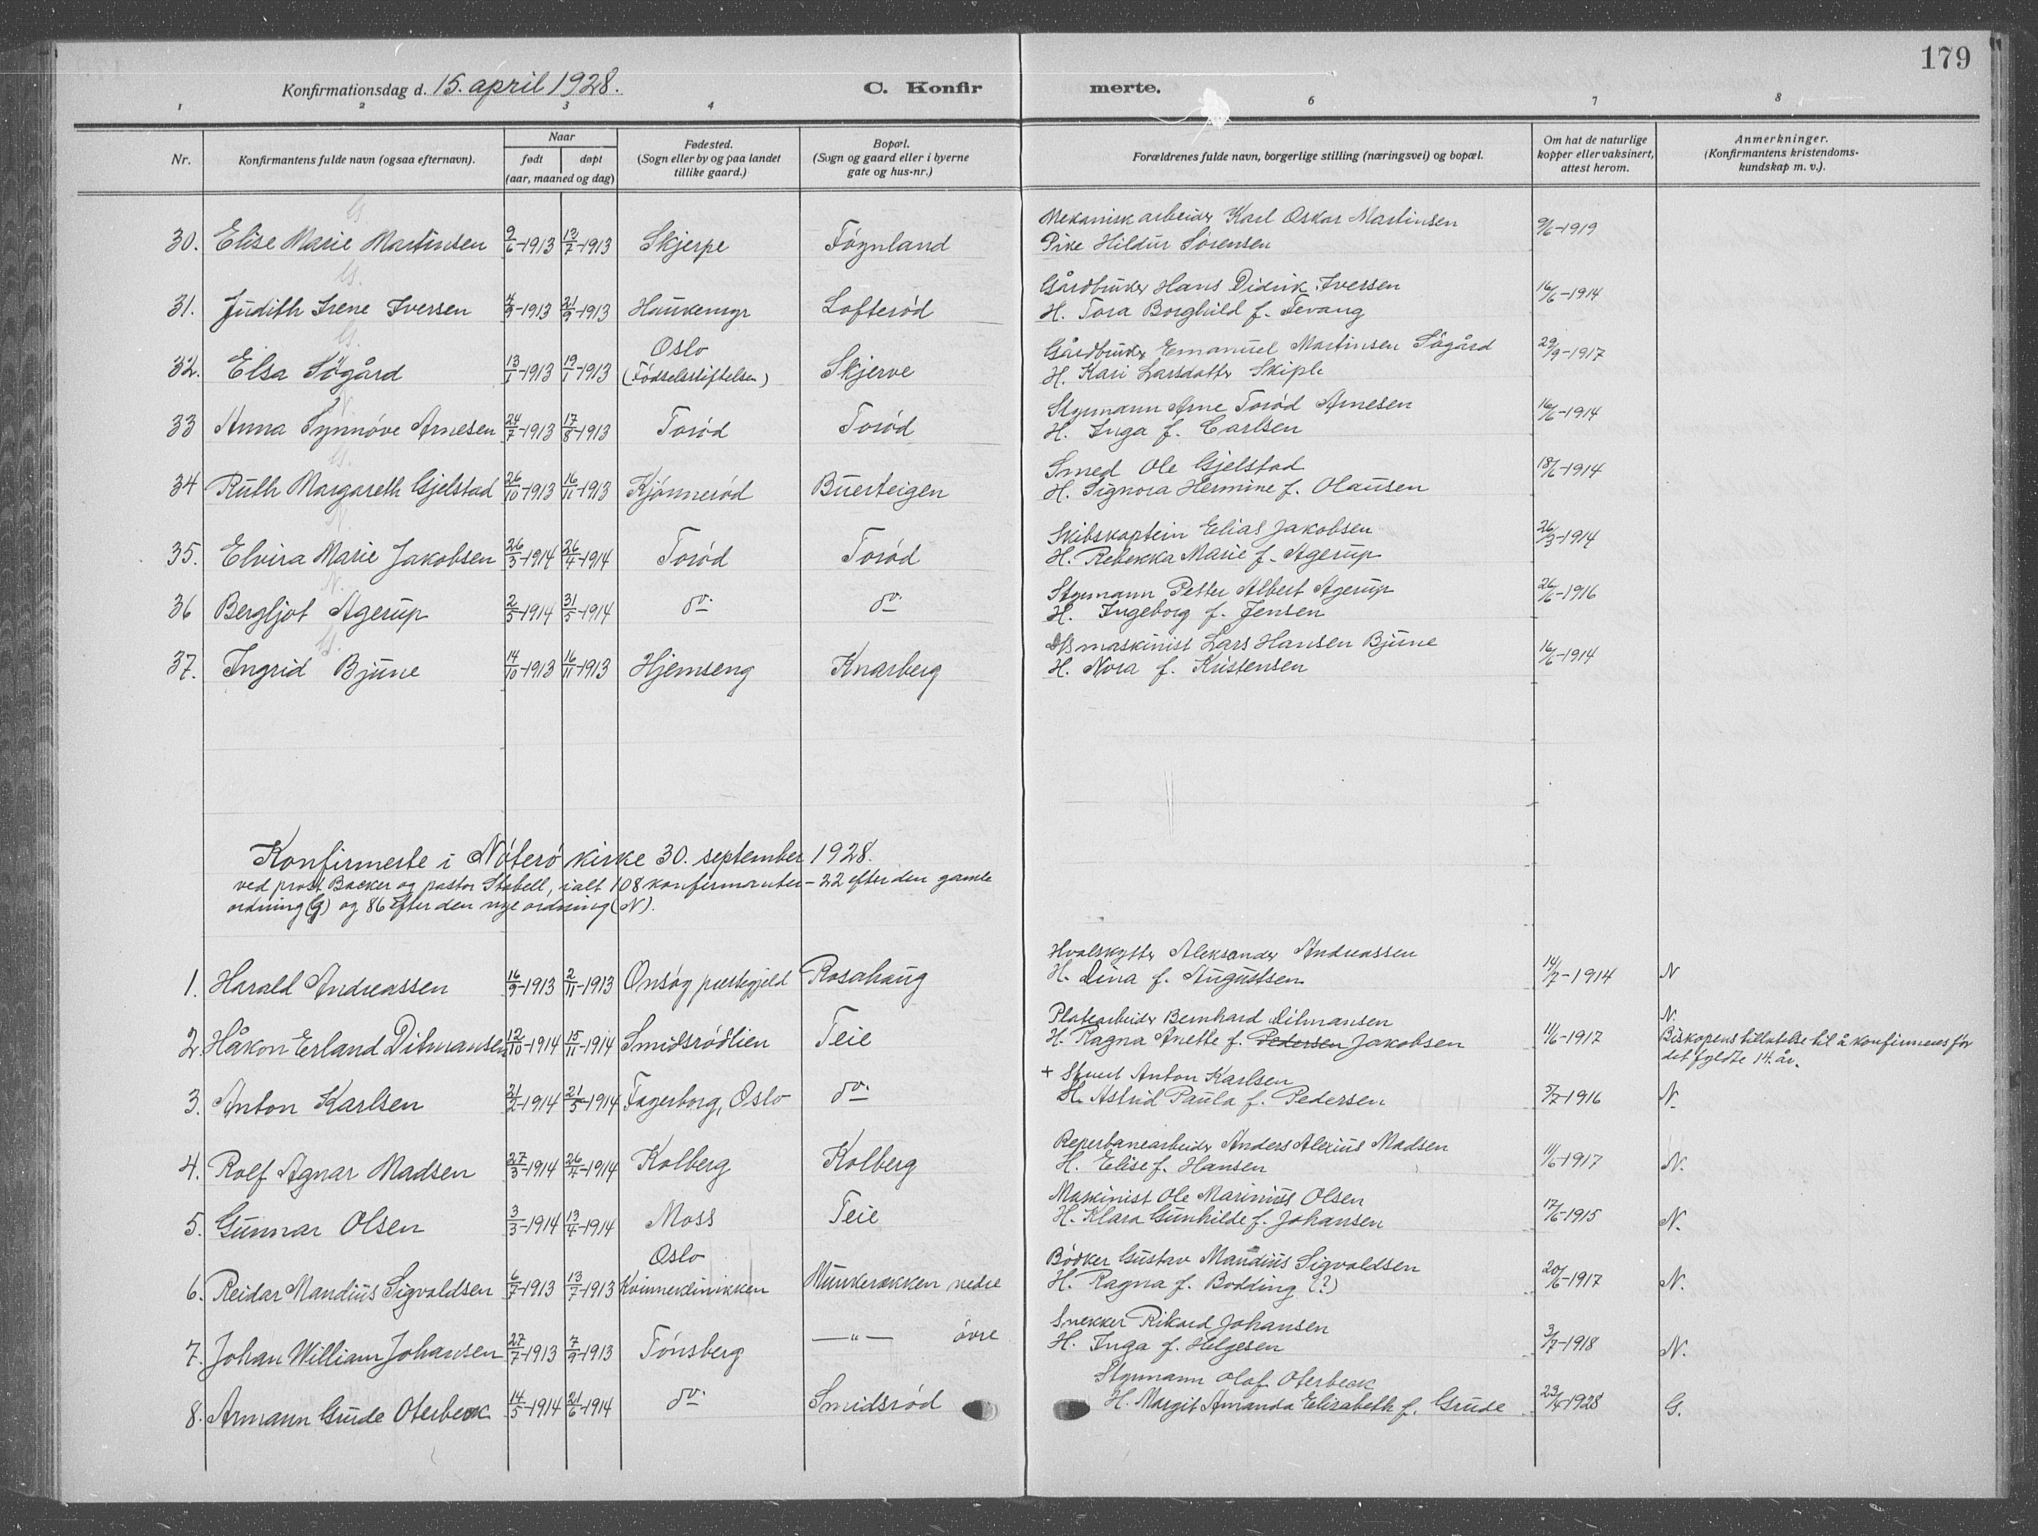 179
Konfirmationsdag d. 15. april 1928.
C. Konfir
merte.
1 2 3 4 6 7 8
Nr.
Konfirmantens fulde navn (ogsaa efternavn).
Naar
født døpt
(aar, maaned og dag)
Fødested.
(Sogn eller by og paa landet
tillike gaard.)
Bopæl.
(Sogn og gaard eller i byerne
gate og hus-nr.)
Forældrenes fulde navn, borgerlige stilling (næringsvei) og bopæl.
Om hat de naturlige
kopper eller vaksinert,
attest herom.
Anmerkninger.
(Konfirmantens kristendoms-
kundskap m. v.).
G.
Mekanisk arbeider Karl Oskar Martinsen
30. Elise Marie Martinsen 9/6-1913 13/7-1913 Skjerpe Føynland 9/6-1919
Pike Hildur Sørensen
G.
Gårdbruker Hans Didrik Iversen
31. Judith Irene Iversen 4/3-1913 21/9-1913 Haukemyr Lofterød 16/6-1914
H. Tora Borghild f. Tevang
G.
Gårdbruker Emanuel Martinsen Sögård
32. Elsa Sögård 13/1-1913 19/1-1913 Oslo (Fødselsstiftelsen) Skjerve 29/9-1917
H. Kari Larsdatter Skiple
N.
Styrmann Arne Torød Arnesen
33 Anna Synnøve Arnesen 24/7-1913 17/8-1913 Torød Torød 16/6-1914
H. Inga f. Carlsen
G.
Smed Ole Gjelstad
34 Ruth Margareth Gjelstad 26/10-1913 16/11-1913 Kjønnerød Buerteigen 18/6-1914
H. Signora Hermine f. Olausen
N.
Skibskaptein Elias Jakobsen
35. Elvira Marie Jakobsen 26/3-1914 26/4-1914 Torød Torød 26/3-1914
H. Rebekka Marie f. Agerup
N.
Styrmann Petter Albert Agerup
36 Bergljot Agerup 2/5-1914 31/5-1914 do do 26/6-1916
H. Ingeborg f. Jensen
G.
D/S maskinist Lars Hansen Bjune
37. Ingrid Bjune 14/10-1913 16/11-1913 Hjemseng Knarberg 16/6-1914
H. Nora f. Kristensen
Konfirmerte i Nøterö kirke 30. september 1928.
ved prost Backer og pastor Stabell, ialt 108 konfirmanter - 22 efter den gamle
ordning (G) og 86 efter den nye ordning (N).
Hvalskytter Aleksander Andreassen
1. Harald Andreassen 16/9-1913 2/11-1913 Onsøy prestegjeld Rosahaug 14/7-1914 N
H. Lina f. Augustsen
Platearbeider Bernhard Ditmansen
2. Håkon Erland Ditmansen 12/10-1914 15/11-1914 Smidsrødlien Teie 11/6-1917 N.
H. Ragna Anette f. Pedersen Jakobsen
Biskopens tillatelse til å konfirmeres før
det fyldte 14. år.
+ Stuert Anton Karlsen
3. Anton Karlsen 21/2-1914 21/5-1914 Fagerborg, Oslo do 5/7-1916 N.
H. Astrid Paula f. Pedersen
Reperbanearbeider Anders Alexius Madsen
4. Rolf Agnar Madsen 27/3-1914 26/4-1914 Kolberg Kolberg 11/6-1917 N.
H. Elise f. Hansen
Maskinist Ole Marinius Olsen
5. Gunnar Olsen 3/3-1914 13/4-1914 Moss Teie 17/6-1915 N.
H. Klara Gunhilde f. Johansen
Bødker Gustav Mandius Sigvaldsen
6. Reidar Mandius Sigvaldsen 6/7-1913 13/7-1913 Oslo Kvinneklinikken Munkerekken nedre 20/6-1917 N.
H. Ragna f. Bodding (?)
Snekker Rikard Johansen
7. Johan William Johansen 27/7-1913 7/9-1913 Tönsberg —"— övre 3/7-1918 N.
H. Inga f. Helgesen
Styrmann Olaf Oterbeck
8. Armann Grude Oterbeck 14/5-1914 21/6-1914 do Smidsrød 23/4-1928 G.
H. Margit Amanda Elisabeth f. Grude